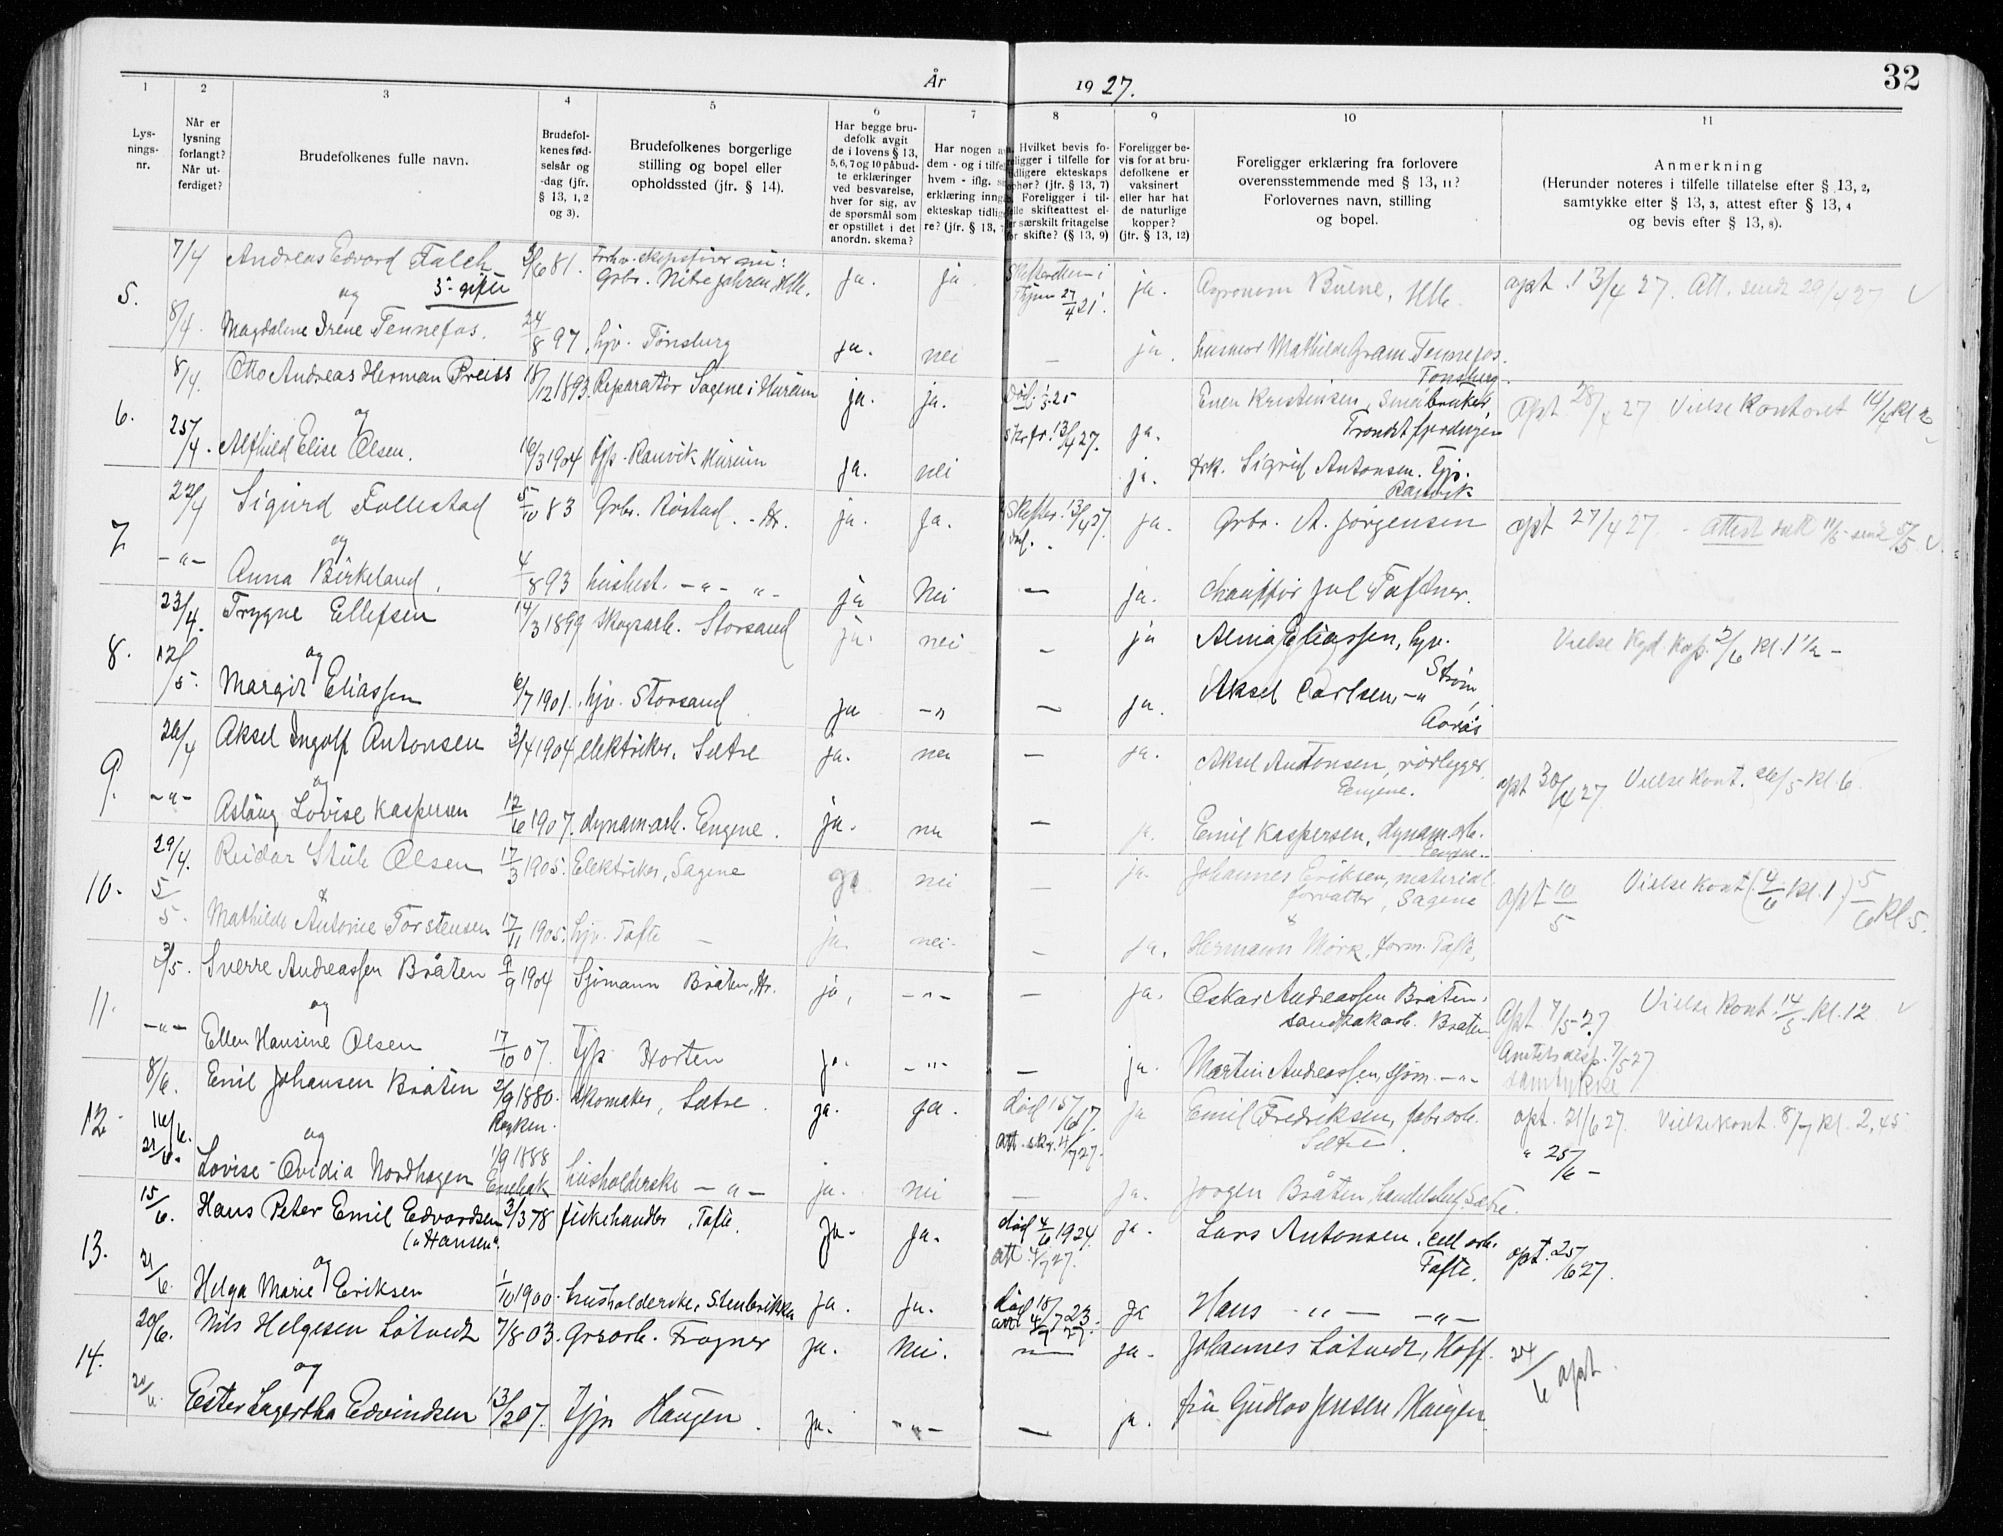 År 1927.
32
1 2 3 4 5 6 7 8 9 10 11
Lys-
nings-
nr.
Når er
lysning
forlangt?
Når ut-
ferdiget?
Brudefolkenes fulle navn.
Brudefol-
kenes fød-
selsår og
-dag (jfr.
§ 13, 1, 2
og 3).
Brudefolkenes borgerlige
stilling og bopel eller
opholdssted (jfr. § 14).
Har begge bru-
defolk avgit
de i lovens § 13,
5, 6, 7 og 10 påbud-
te erklæringer
ved besvarelse,
hver for sig, av
de spørsmål som
er opstillet i det
anordn. skema?
Har nogen a
dem - og i tilfe
hvem - iflg.
erklæring inng
ekteskap tidlig
re? (jfr. § 13,
Hvilket bevis fo-
religger i tilfelle for
tidligere ekteskaps
ophør? (jfr. § 13, 7)
Foreligger i til-
felle skifteattest el-
ler særskilt fritagelse
for skifte? (§ 13, 9)
Foreligger be-
vis for at bru-
defolkene er
vaksinert
eller har hat
de naturlige
kopper?
(jfr. § 13, 12)
Foreligger erklæring fra forlovere
overensstemmende med § 13, 11?
Forlovernes navn, stilling
og bopel.
Anmerkning
(Herunder noteres i tilfelle tillatelse efter § 13, 2,
samtykke efter § 13, 3, attest efter § 13, 4
og bevis efter § 13, 8).
5. 7/4 Andreas Edvard Falch 81. ja. ja ja. Agronom Buene, Hle. opt. 13/4 27. Att. sendt 29/4 27
og
8/4. Magdalene Irene Tennefos. 24/8 97, hjv. Tønsberg ja. nei — ja. husmor Mathilde Gram Tennefos.
Tønsberg.
6. 8/4. Otto Andreas Herman Preiss 18/12 1893. Reparatør Sagene i Hurum ja. ja. Einer Kristensen, småbruker, opt 28/4 27 Vielse Kontoret
og
25/4. Alfhild Elise Olsen. 1904 tjp. Ranvik Hurum ja. nei ja. Sigrid Antonsen. tjp.
Ranvik
7. 22/4 Sigurd Follestad 5/10 83 Grbr. Røstad. - Hr. ja. ja. Skifter. 13/4 27. ja. Grbr. A. Jørgensen opt 27/4 27. - Attest
og
-"- Anna Birkeland. 4/8 93 husbest. -"- "- ja Nei — ja. Chauffør Jul Toftner.
8. 23/4. Trygve Ellefsen 14/3 1899 skogsarb. Storsand ja. nei — ja Alma Eliassen, hjv. Vielse
og
12/5. Margit Eliassen 6/7 1901. hjv. Storsand ja -" — ja. Aksel Carlsen, -"
9. 26/4 Aksel Ingolf Antonsen 3/4 1904 elektriker. Sætre ja. nei — ja. Aksel Antonsen, rørlegger, opt 30/4 27. Vielse Kont. 26/5 kl 6.
Engene.
og
-"- Aslaug Lovise Kaspersen 12/6 1907. dynam.arb. Engene. ja. nei — ja. Emil Kaspersen, dynam.arb.
Engene.
10. 29/4. Reidar Olsen 17/3 1905. Elektriker, Sagene ja nei — ja. Johannes Eriksen, material opt 10/5 Vielse kont (4/6 kl. 1) 5/6 kl. 5.
forvalter, Sagene
&
5/5. Mathilde Antonie Torstensen 17/11 1905. hjv. Tofte — ja. nei. — ja. Hermann Mørk, form. Tofte,
11. 3/5. Sverre Andreassen Bråten 9/9 1904 Sjømann Bråten, Hr. ja, -"- — ja. Oskar Andreassen Bråten, opt 7/5-27 Vielse kont. 14/5. kl. 12
Bråten
og
-"- Ellen Hansine Olsen 17/10 07. Tjp. Horten ja. -"- — ja. Martin Andreassen, sjøm. -"- Amtets disp. 7/5-27
samtykke
12. 8/6. Emil Johansen Bråten 2/9 1880. skomaker, Sætre. ja. ja. død 15/7 ja Emil Fredriksen, fabr.arb. opt. 21/6 27. Vielse kont. 8/7 kl. 2,45
Røyken.
Sætre.
og
21/6. Lovise Ovidia Nordhagen 1/9 1888 husholderske -"- ja. nei — ja. Jørgen Bråten handelsbetj. Sætre. " 25/6 -
Enebak
13. 15/6. Hans Peter Emil Edvardsen 3/3 78 fiskehandler, Tofte. ja. ja. død 4/6 1924 ja. Lars Antonsen. cell arb. opt. 25/6 27.
("Hansen".
att 4/7 27.
Tofte.
og
21/6. Helga Marie Eriksen 1/10 1900. husholderske, Stenbrikka ja. ja. død 18/7 23. ja Hans -"- -"-
14. 20/6. Nils Helgesen Løtvedt 7/8 03. Grbarb. Frogner ja. Nei. — ja. Johannes Løtvedt, Hoff. 24/6 opt.
og
20/6. Ester Lagertha Edvindsen 13/2 07. tjp Haugen. ja. -"- — ja. fru Gudlos Jensen Haugen